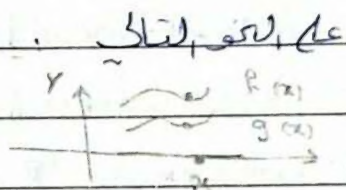 على النحو التالي .
y
h(x)
g(x)
x